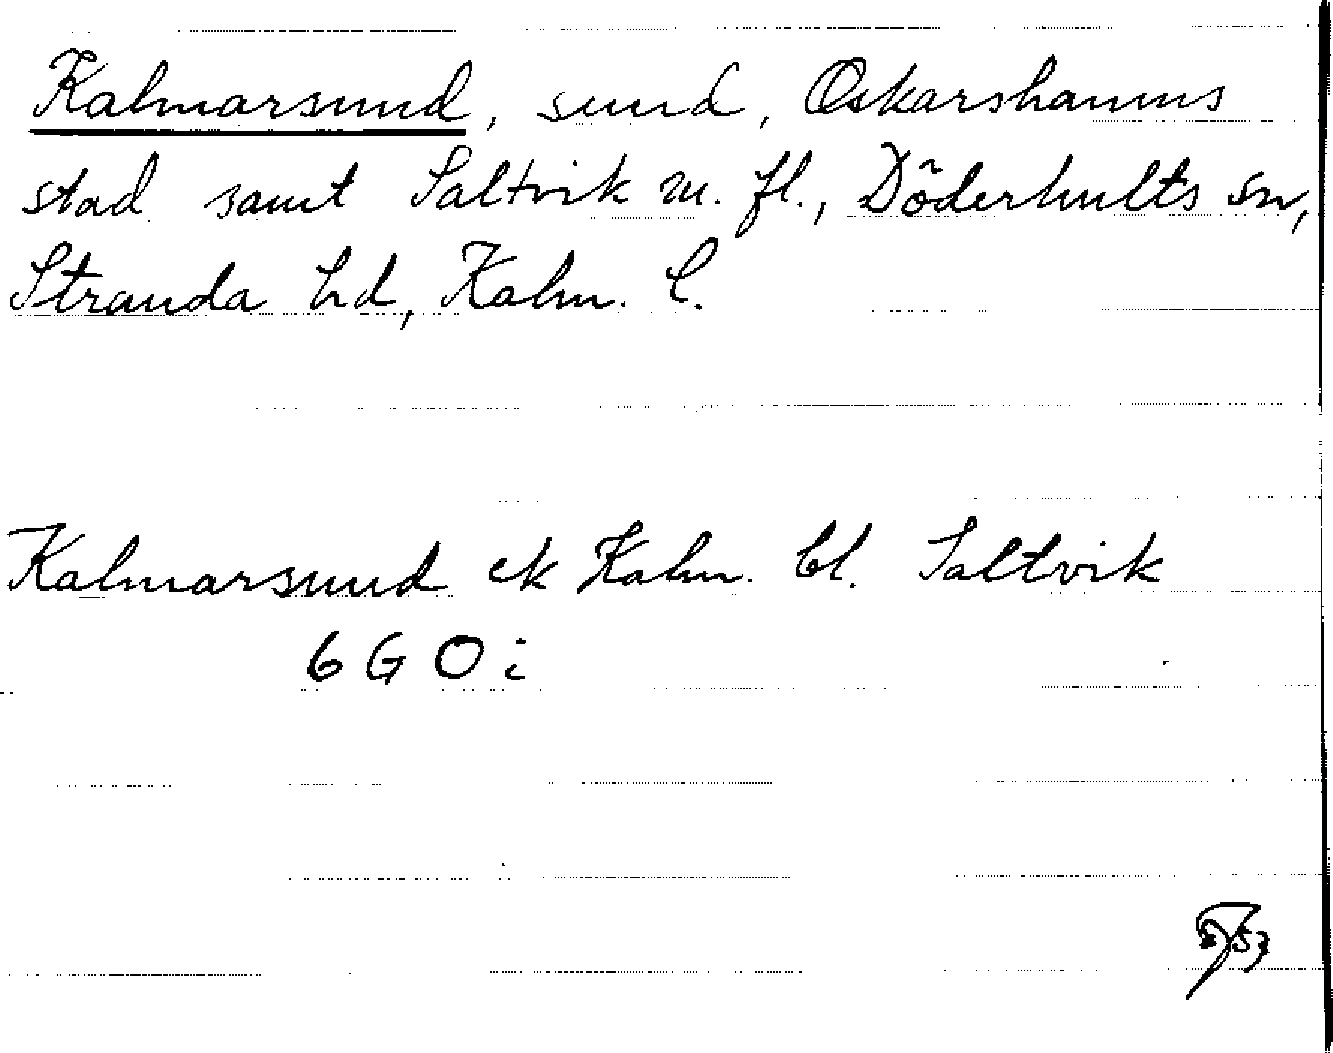 Kalmarsund, sund, Oskarshamns
stad samt Saltvik m. fl., Döderhults sn,
Stranda hd, Kalm. l.
Kalmarsund ek Kalm. bl. Saltvik
6 G O i
53